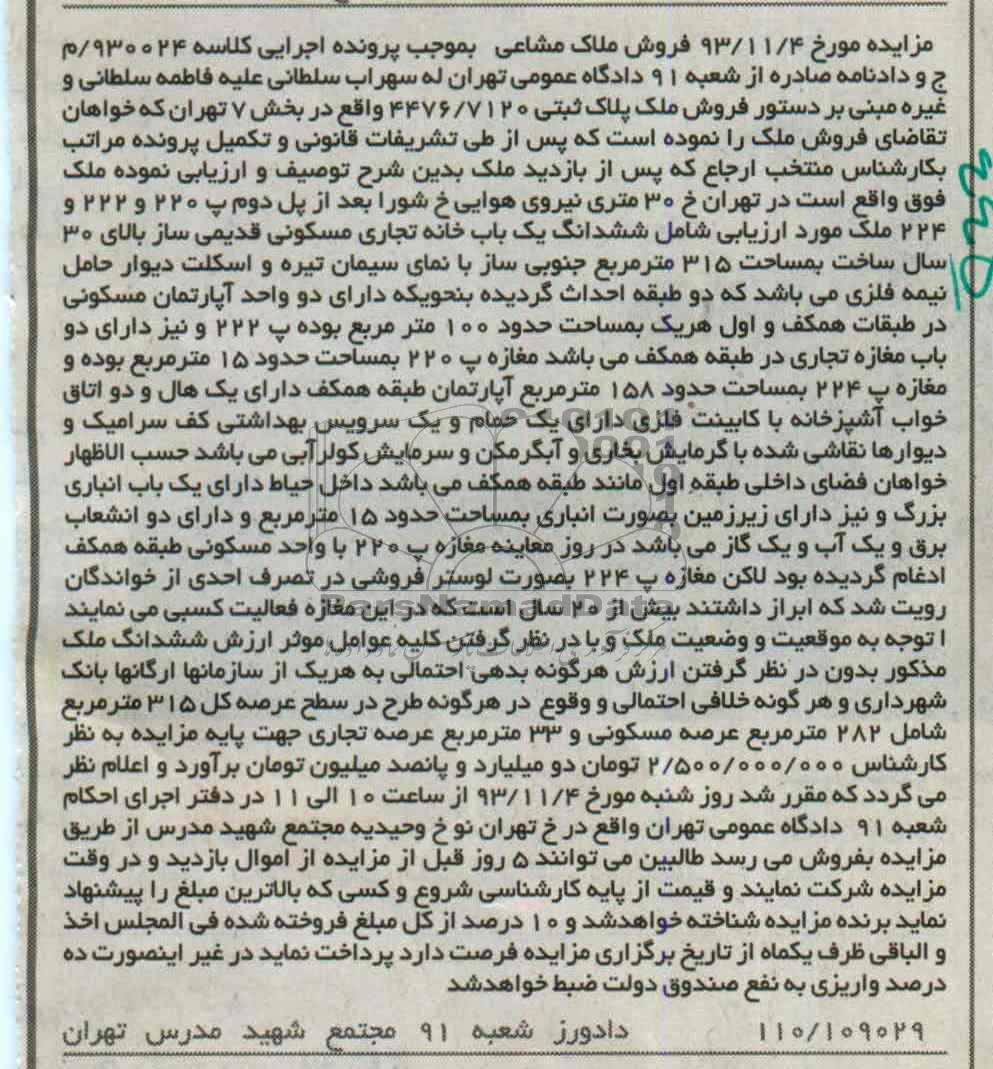 مزایده مورخ ۹۳/۱۱/۴ فروش ملاک مشاعی بموجب پرونده اجرایی کلاسه ۹۳۰۰۲۴/م
ج و دادنامه صادره از شعبه ۹۱ دادگاه عمومی تهران له سهراب سلطانی علیه فاطمه سلطانی و
غیره مبنی بر دستور فروش ملک پلاک ثبتی ۴۴۷۶/۷۱۲۰ واقع در بخش ۷ تهران که خواهان
تقاضای فروش ملک را نموده است که پس از طی تشریفات قانونی و تکمیل پرونده مراتب
بکارشناس منتخب ارجاع که پس از بازدید ملک بدین شرح توصیف و ارزیابی نموده ملک
فوق واقع است در تهران خ ۳۰ متری نیروی هوایی خ شورا بعد از پل دوم پ ۲۲۰ و ۲۲۲ و
۲۲۴ ملک مورد ارزیابی شامل ششدانگ یک باب خانه تجاری مسکونی قدیمی ساز بالای ۳۰
سال ساخت بمساحت ۳۱۵ مترمربع جنوبی ساز با نمای سیمان تیره و اسکلت دیوار حامل
نیمه فلزی می باشد که دو طبقه احداث گردیده بنحویکه دارای دو واحد آپارتمان مسکونی
در طبقات همکف و اول هریک بمساحت حدود ۱۰۰ متر مربع بوده پ ۲۲۲ و نیز دارای دو
باب مغازه تجاری در طبقه همکف می باشد مغازه پ ۲۲۰ بمساحت حدود ۱۵ مترمربع بوده و
مغازه پ ۲۲۴ بمساحت حدود ۱۵۸ مترمربع آپارتمان طبقه همکف دارای یک هال و دو اتاق
خواب آشپزخانه با کابینت فلزی دارای یک حمام و یک سرویس بهداشتی کف سرامیک و
دیوارها نقاشی شده با گرمایش بخاری و آبگرمکن و سرمایش کولرآبی می باشد حسب الاظهار
خواهان فضای داخلی طبقه اول مانند طبقه همکف می باشد داخل حیاط دارای یک باب انباری
بزرگ و نیز دارای زیرزمین بصورت انباری بمساحت حدود ۱۵ مترمربع و دارای دو انشعاب
برق و یک آب و یک گاز می باشد در روز معاینه مغازه پ ۲۲۰ با واحد مسکونی طبقه همکف
ادغام گردیده بود لاکن مغازه پ ۲۲۴ بصورت لوستر فروشی در تصرف احدی از خواندگان
رویت شد که ابراز داشتند بیش از ۲۰ سال است که در این مغازه فعالیت کسبی می نمایند
ا توجه به موقعیت و وضعیت ملک و با در نظر گرفتن کلیه عوامل موثر ارزش ششدانگ ملک
مذکور بدون در نظر گرفتن ارزش هرگونه بدهی احتمالی به هریک از سازمانها ارگانها بانک
شهرداری و هر گونه خلافی احتمالی و وقوع در هرگونه طرح در سطح عرصه کل ۳۱۵ مترمربع
شامل ۲۸۲ مترمربع عرصه مسکونی و ۳۳ مترمربع عرصه تجاری جهت پایه مزایده به نظر
کارشناس ۲/۵۰۰/۰۰۰/۰۰۰ تومان دو میلیارد و پانصد میلیون تومان برآورد و اعلام نظر
می گردد که مقرر شد روز شنبه مورخ ۹۳/۱۱/۴ از ساعت ۱۰ الی ۱۱ در دفتر اجرای احکام
شعبه ۹۱ دادگاه عمومی تهران واقع در خ تهران نو خ وحیدیه مجتمع شهید مدرس از طریق
مزایده بفروش می رسد طالبین می توانند ۵ روز قبل از مزایده از اموال بازدید و در وقت
مزایده شرکت نمایند و قیمت از پایه کارشناسی شروع و کسی که بالاترین مبلغ را پیشنهاد
نماید برنده مزایده شناخته خواهدشد و ۱۰ درصد از کل مبلغ فروخته شده فی المجلس اخذ
و الباقی ظرف یکماه از تاریخ برگزاری مزایده فرصت دارد پرداخت نماید در غیر اینصورت ده
درصد واریزی به نفع صندوق دولت ضبط خواهدشد
۱۱۰/۱۰۹۰۲۹ دادورز شعبه ۹۱ مجتمع شهید مدرس تهران
ParsNamadData